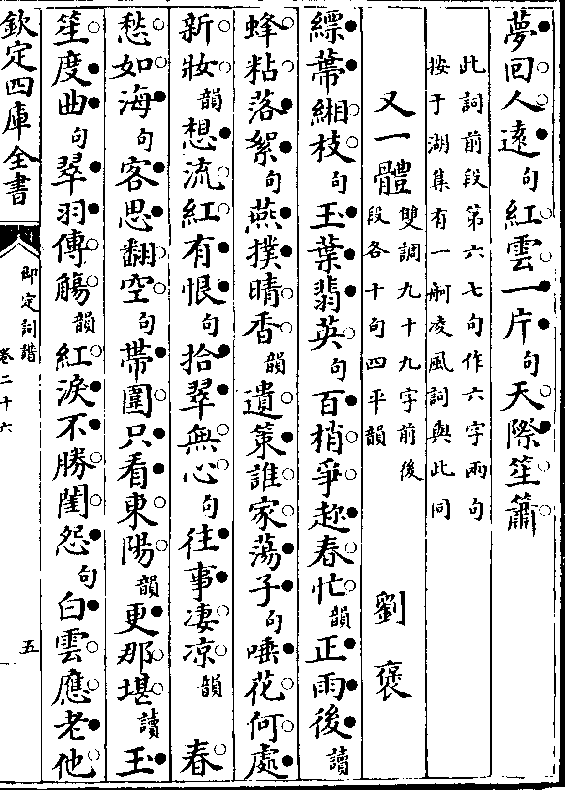 夢回人遠句紅雲一片句天際笙簫
此詞前段第六七句作六字兩句
按于湖集有一舸凌風詞與此同
又一體 雙調九十九字前後
段各十句四平韻 劉褒
縹蔕緗枝句玉葉翡英句百梢爭趂春忙韻正雨後讀
蜂粘落絮句燕撲晴香韻遺策誰家蕩子句唾花何處
新妝韻想流紅有恨句拾翠無心句往事凄凉韻 春
愁如海句客思翻空句帶圍只看東陽韻更那堪讀玉
笙度曲句翠羽傳觴韻紅淚不勝閨怨句白雲應老他
欽定四庫全書 御定詞譜 卷二十六 五